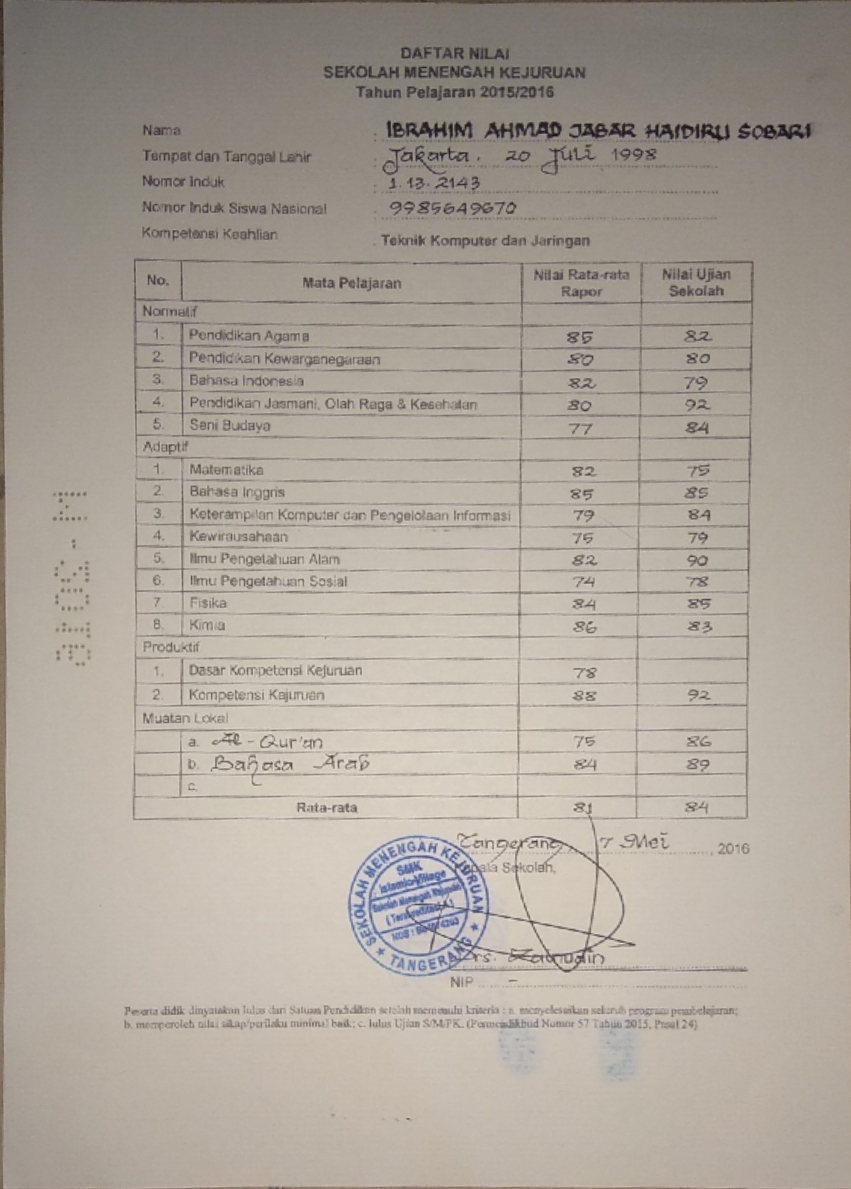 DAFTAR NILAI
SEKOLAH MENENGAH KEJURUAN
Tahun Pelajaran 2015/2016
Nama : IBRAHIM AHMAD JABAR HAIDIRU SOBARI
Tempat dan Tanggal Lahir : Jakarta, 20 Juli 1998
Nomor Induk : 1.13.2143
Nomor Induk Siswa Nasional : 9985649670
Kompetensi Keahlian : Teknik Komputer dan Jaringan
No. Mata Pelajaran Nilai Rata-rata Rapor Nilai Ujian Sekolah
Normatif
1. Pendidikan Agama 85 82
2. Pendidikan Kewarganegaraan 80 80
3. Bahasa Indonesia 82 79
4. Pendidikan Jasmani, Olah Raga & Kesehatan 80 92
5. Seni Budaya 77 84
Adaptif
1. Matematika 82 75
2. Bahasa Inggris 85 85
3. Keterampilan Komputer dan Pengelolaan Informasi 79 84
4. Kewirausahaan 75 79
5. Ilmu Pengetahuan Alam 82 90
6. Ilmu Pengetahuan Sosial 74 78
7. Fisika 84 85
8. Kimia 86 83
Produktif
1. Dasar Kompetensi Kejuruan 78
2. Kompetensi Kajuruan 88 92
Muatan Lokal
a. Al-Qur'an 75 86
b. Bahasa Arab 84 89
c.
Rata-rata 81 84
Tangerang, 7 Mei, 2016
Kepala Sekolah,
SEKOLAH MENENGAH KEJURUAN
SMK
Islamic Village
Sekolah Menengah Kejuruan
TANGERANG
Drs. Zainudin
NIP. -
Peserta didik dinyatakan lulus dari Satuan Pendidikan setelah memenuhi kriteria : a. menyelesaikan seluruh program pembelajaran;
b. memperoleh nilai sikap/perilaku minimal baik; c. lulus Ujian S/M/PK. (Permendikbud Nomor 57 Tahun 2015, Pasal 24)